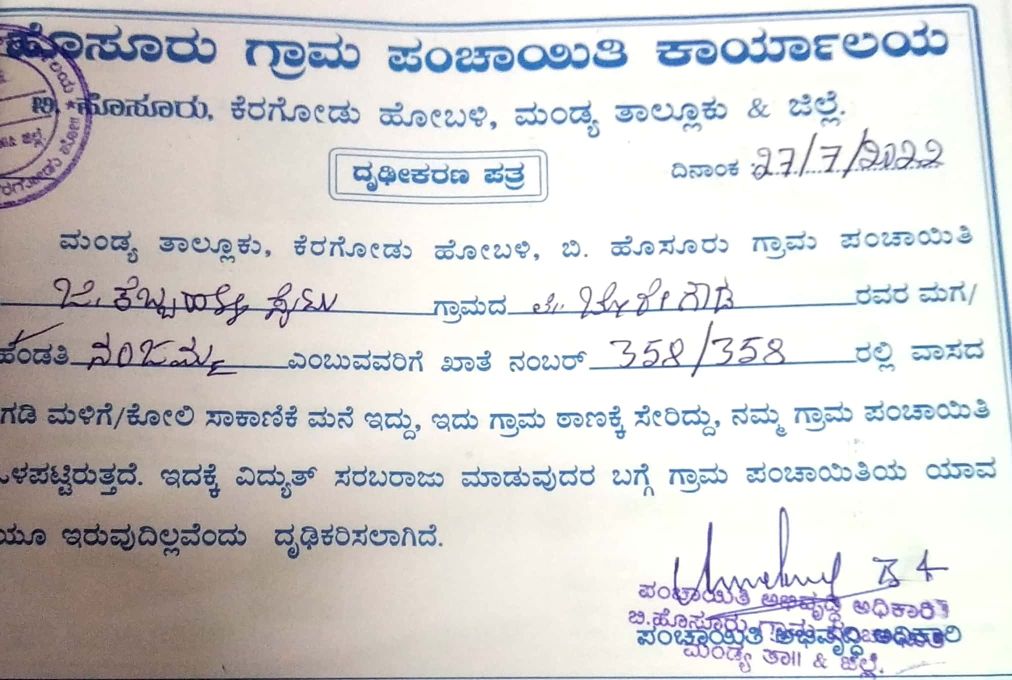 ಹೊಸೂರು ಗ್ರಾಮ ಪಂಚಾಯಿತಿ ಕಾರ್ಯಾಲಯ
ಬಿ. ಹೊಸೂರು, ಕೆರಗೋಡು ಹೋಬಳಿ, ಮಂಡ್ಯ ತಾಲ್ಲೂಕು & ಜಿಲ್ಲೆ.
ದೃಢೀಕರಣ ಪತ್ರ
ದಿನಾಂಕ : 27/7/2022
ಮಂಡ್ಯ ತಾಲ್ಲೂಕು, ಕೆರಗೋಡು ಹೋಬಳಿ, ಬಿ. ಹೊಸೂರು ಗ್ರಾಮ ಪಂಚಾಯಿತಿ
ಗ್ರಾಮದ ಲೇ. ರವರ ಮಗ/
ಹೆಂಡತಿ ನಂಜಮ್ಮ ಎಂಬುವವರಿಗೆ ಖಾತೆ ನಂಬರ್ 358/358 ರಲ್ಲಿ ವಾಸದ
ಗಡಿ ಮಳಿಗೆ/ಕೋಲಿ ಸಾಕಾಣಿಕೆ ಮನೆ ಇದ್ದು, ಇದು ಗ್ರಾಮ ಠಾಣಕ್ಕೆ ಸೇರಿದ್ದು, ನಮ್ಮ ಗ್ರಾಮ ಪಂಚಾಯಿತಿ
ಒಳಪಟ್ಟಿರುತ್ತದೆ. ಇದಕ್ಕೆ ವಿದ್ಯುತ್ ಸರಬರಾಜು ಮಾಡುವುದರ ಬಗ್ಗೆ ಗ್ರಾಮ ಪಂಚಾಯಿತಿಯ ಯಾವ
ಯೂ ಇರುವುದಿಲ್ಲವೆಂದು ದೃಢಿಕರಿಸಲಾಗಿದೆ.
ಪಂಚಾಯಿತಿ ಅಭಿವೃದ್ಧಿ ಅಧಿಕಾರಿ
ಬಿ.ಹೊಸೂರು ಗ್ರಾಮ
ಪಂಚಾಯಿತಿ ಅಭಿವೃದ್ಧಿ ಅಧಿಕಾರಿ
ಮಂಡ್ಯ ತಾ॥ & ಜಿಲ್ಲೆ.